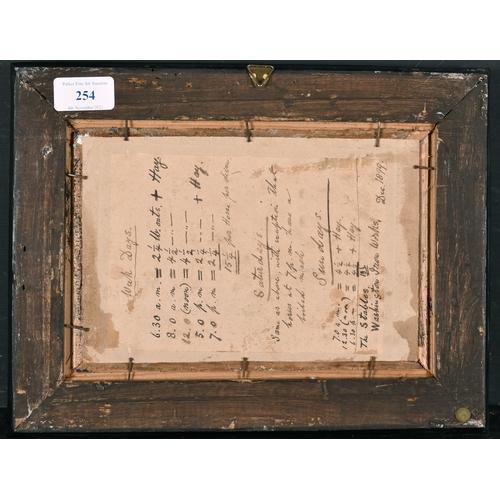 Parker Fine Art Auctions
254
4th November 2021
Week Days.
6.30 a.m. = 2 1/2 lb. oats, + Hay.
8. 0 a.m. = 4 1/2 " "
12. 0 (noon) = 4 1/2 " "
5. 0 p.m = 2 1/2 " " + Hay.
7. 0 p.m = 2 1/2
15 1/2 per Horse per diem
Saturdays:
Same as above, with exception that
horses at 7 p.m. have a
boiled mash
Sundays.
7.0 a.m. = 4 1/2 + Hay.
12.30 (n-n) = 4 1/2 + Hay
6.30 p.m = 4 1/2 + Hay
The Stables,
Washington Iron Works, Dec. 1899.